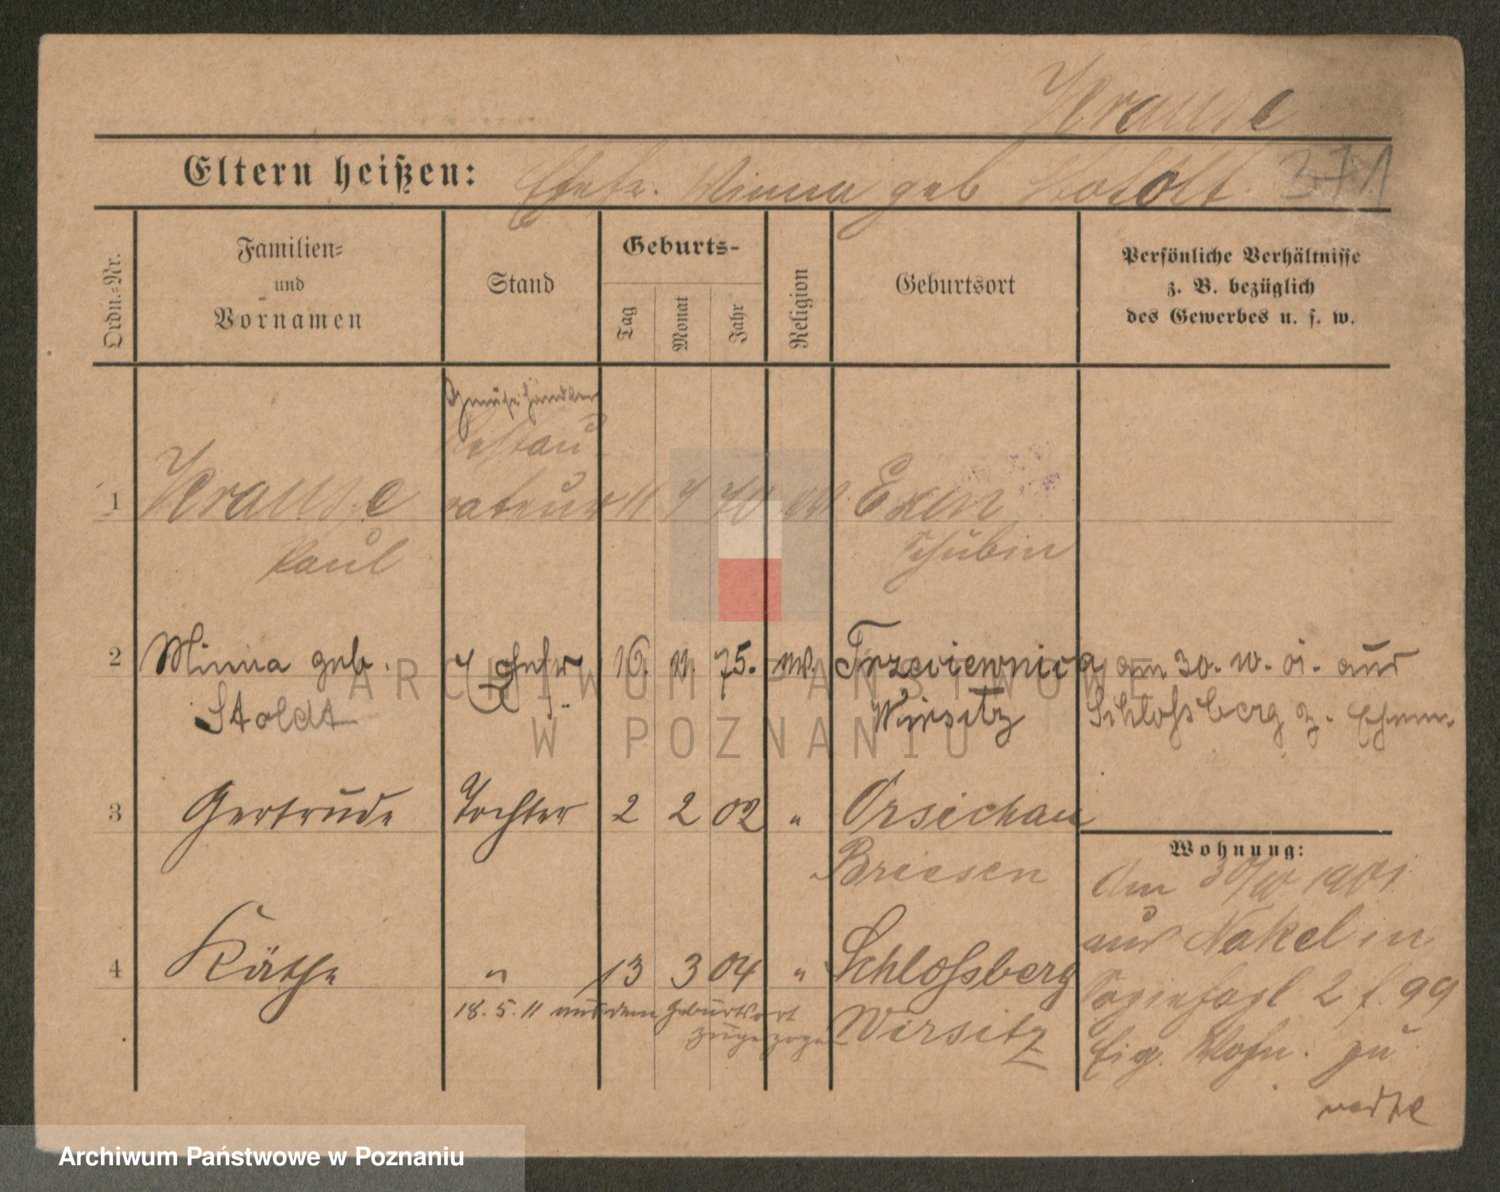 Krause
Eltern heißen: Ehefr. Minna geb Stoldt. 371
Ordn.=Nr.
Familien=
und
Vornamen
Stand
Geburts-
Tag
Monat
Jahr
Religion
Geburtsort
Persönliche Verhältnisse
z. B. bezüglich
des Gewerbes u. s. w.
Gemüsehändler
Restau
1 Krause rateur 11 7 70 Exin
Paul Schubin
2 Minna geb. Ehefr 75. Trzeciewnica am 30. 10. 01. aus
Stoldt Wirsitz Schlossberg z. Ehem.
3 Gertrude Tochter 2 2 02 " Orsichau
Briesen
4 Käthe " 13 3 04 " Schlossberg
18. 5. 11 aus dem Geburtsort
zugezogen
Wirsitz
Wohnung:
Am 30/10 1901
aus Nakel in
2 f. 99
Eig. Wohn. zu
Archiwum Państwowe
w Poznaniu
Archiwum Państwowe w Poznaniu